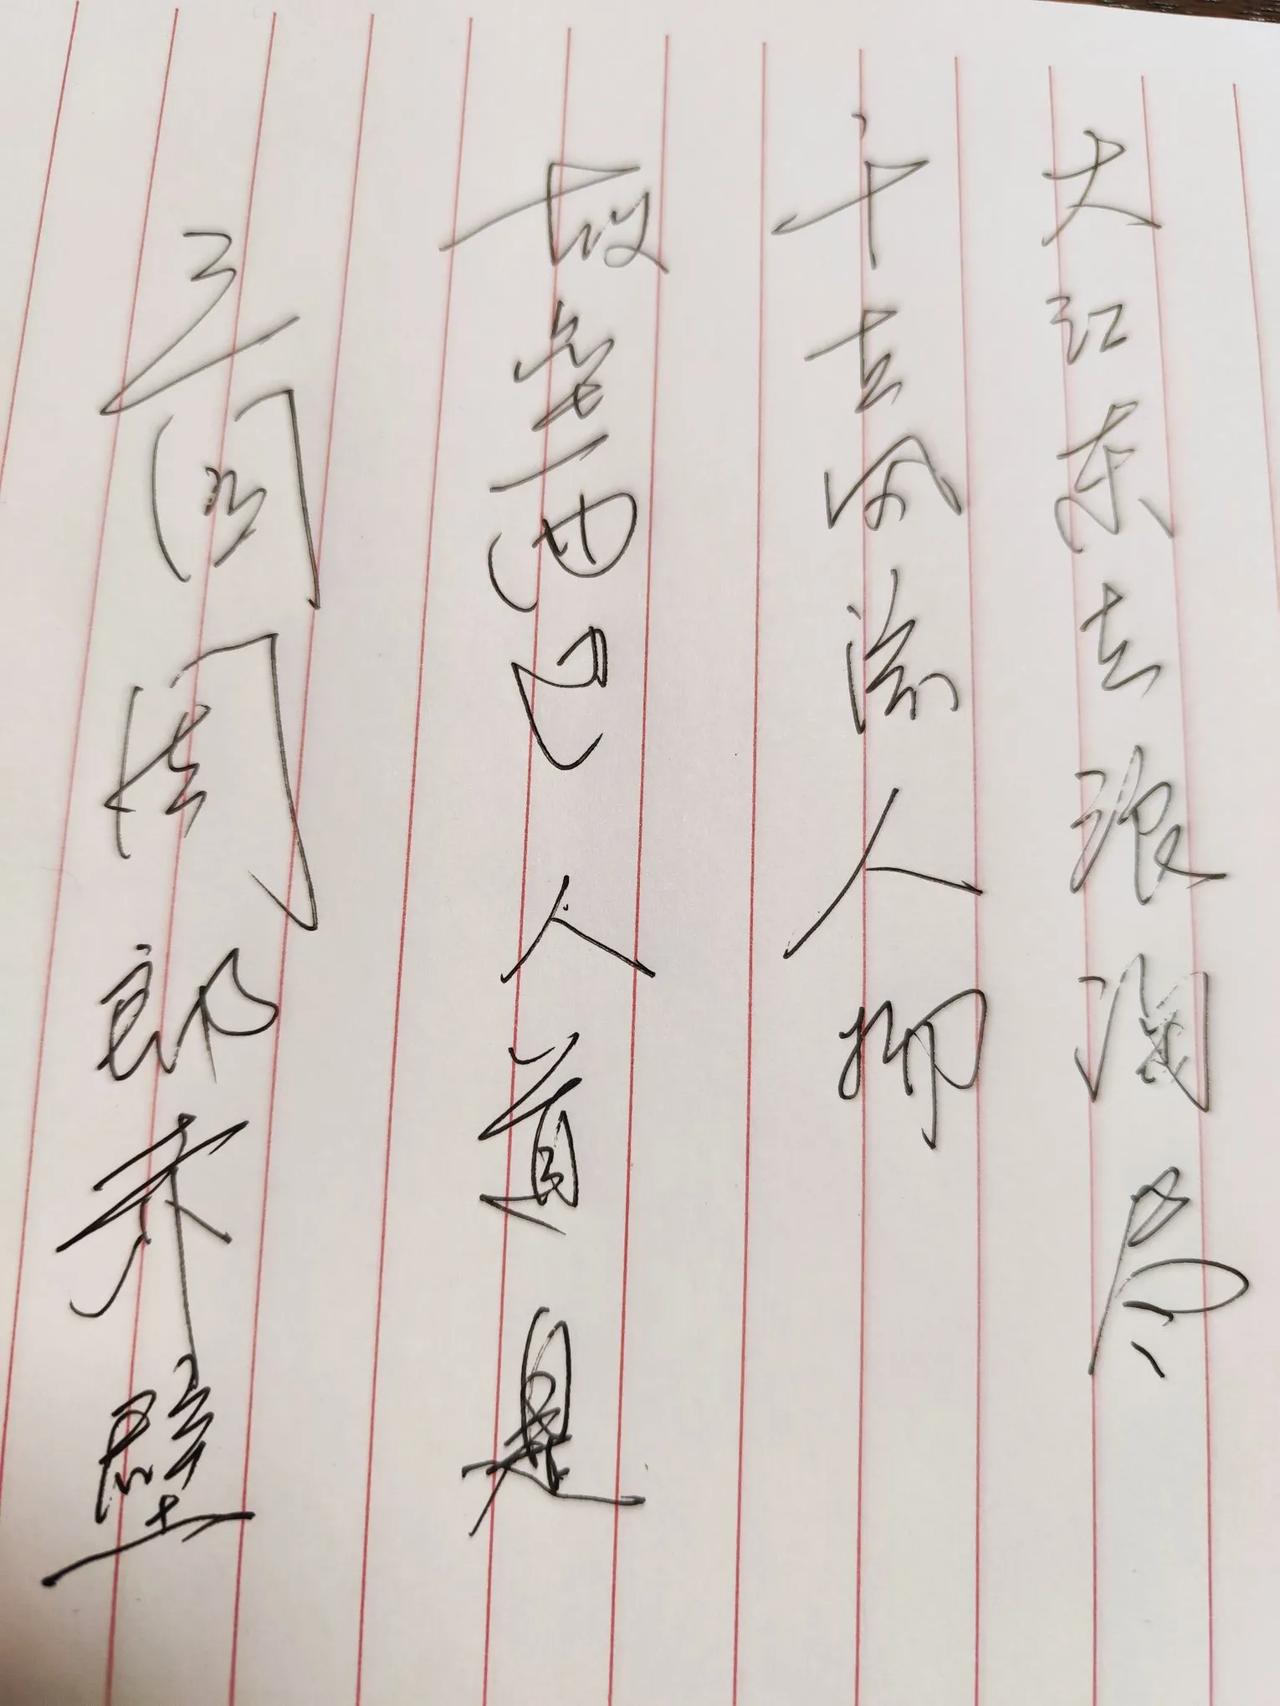 大江东去浪淘尽
千古风流人物
故垒西边人道是
三国周郎赤壁